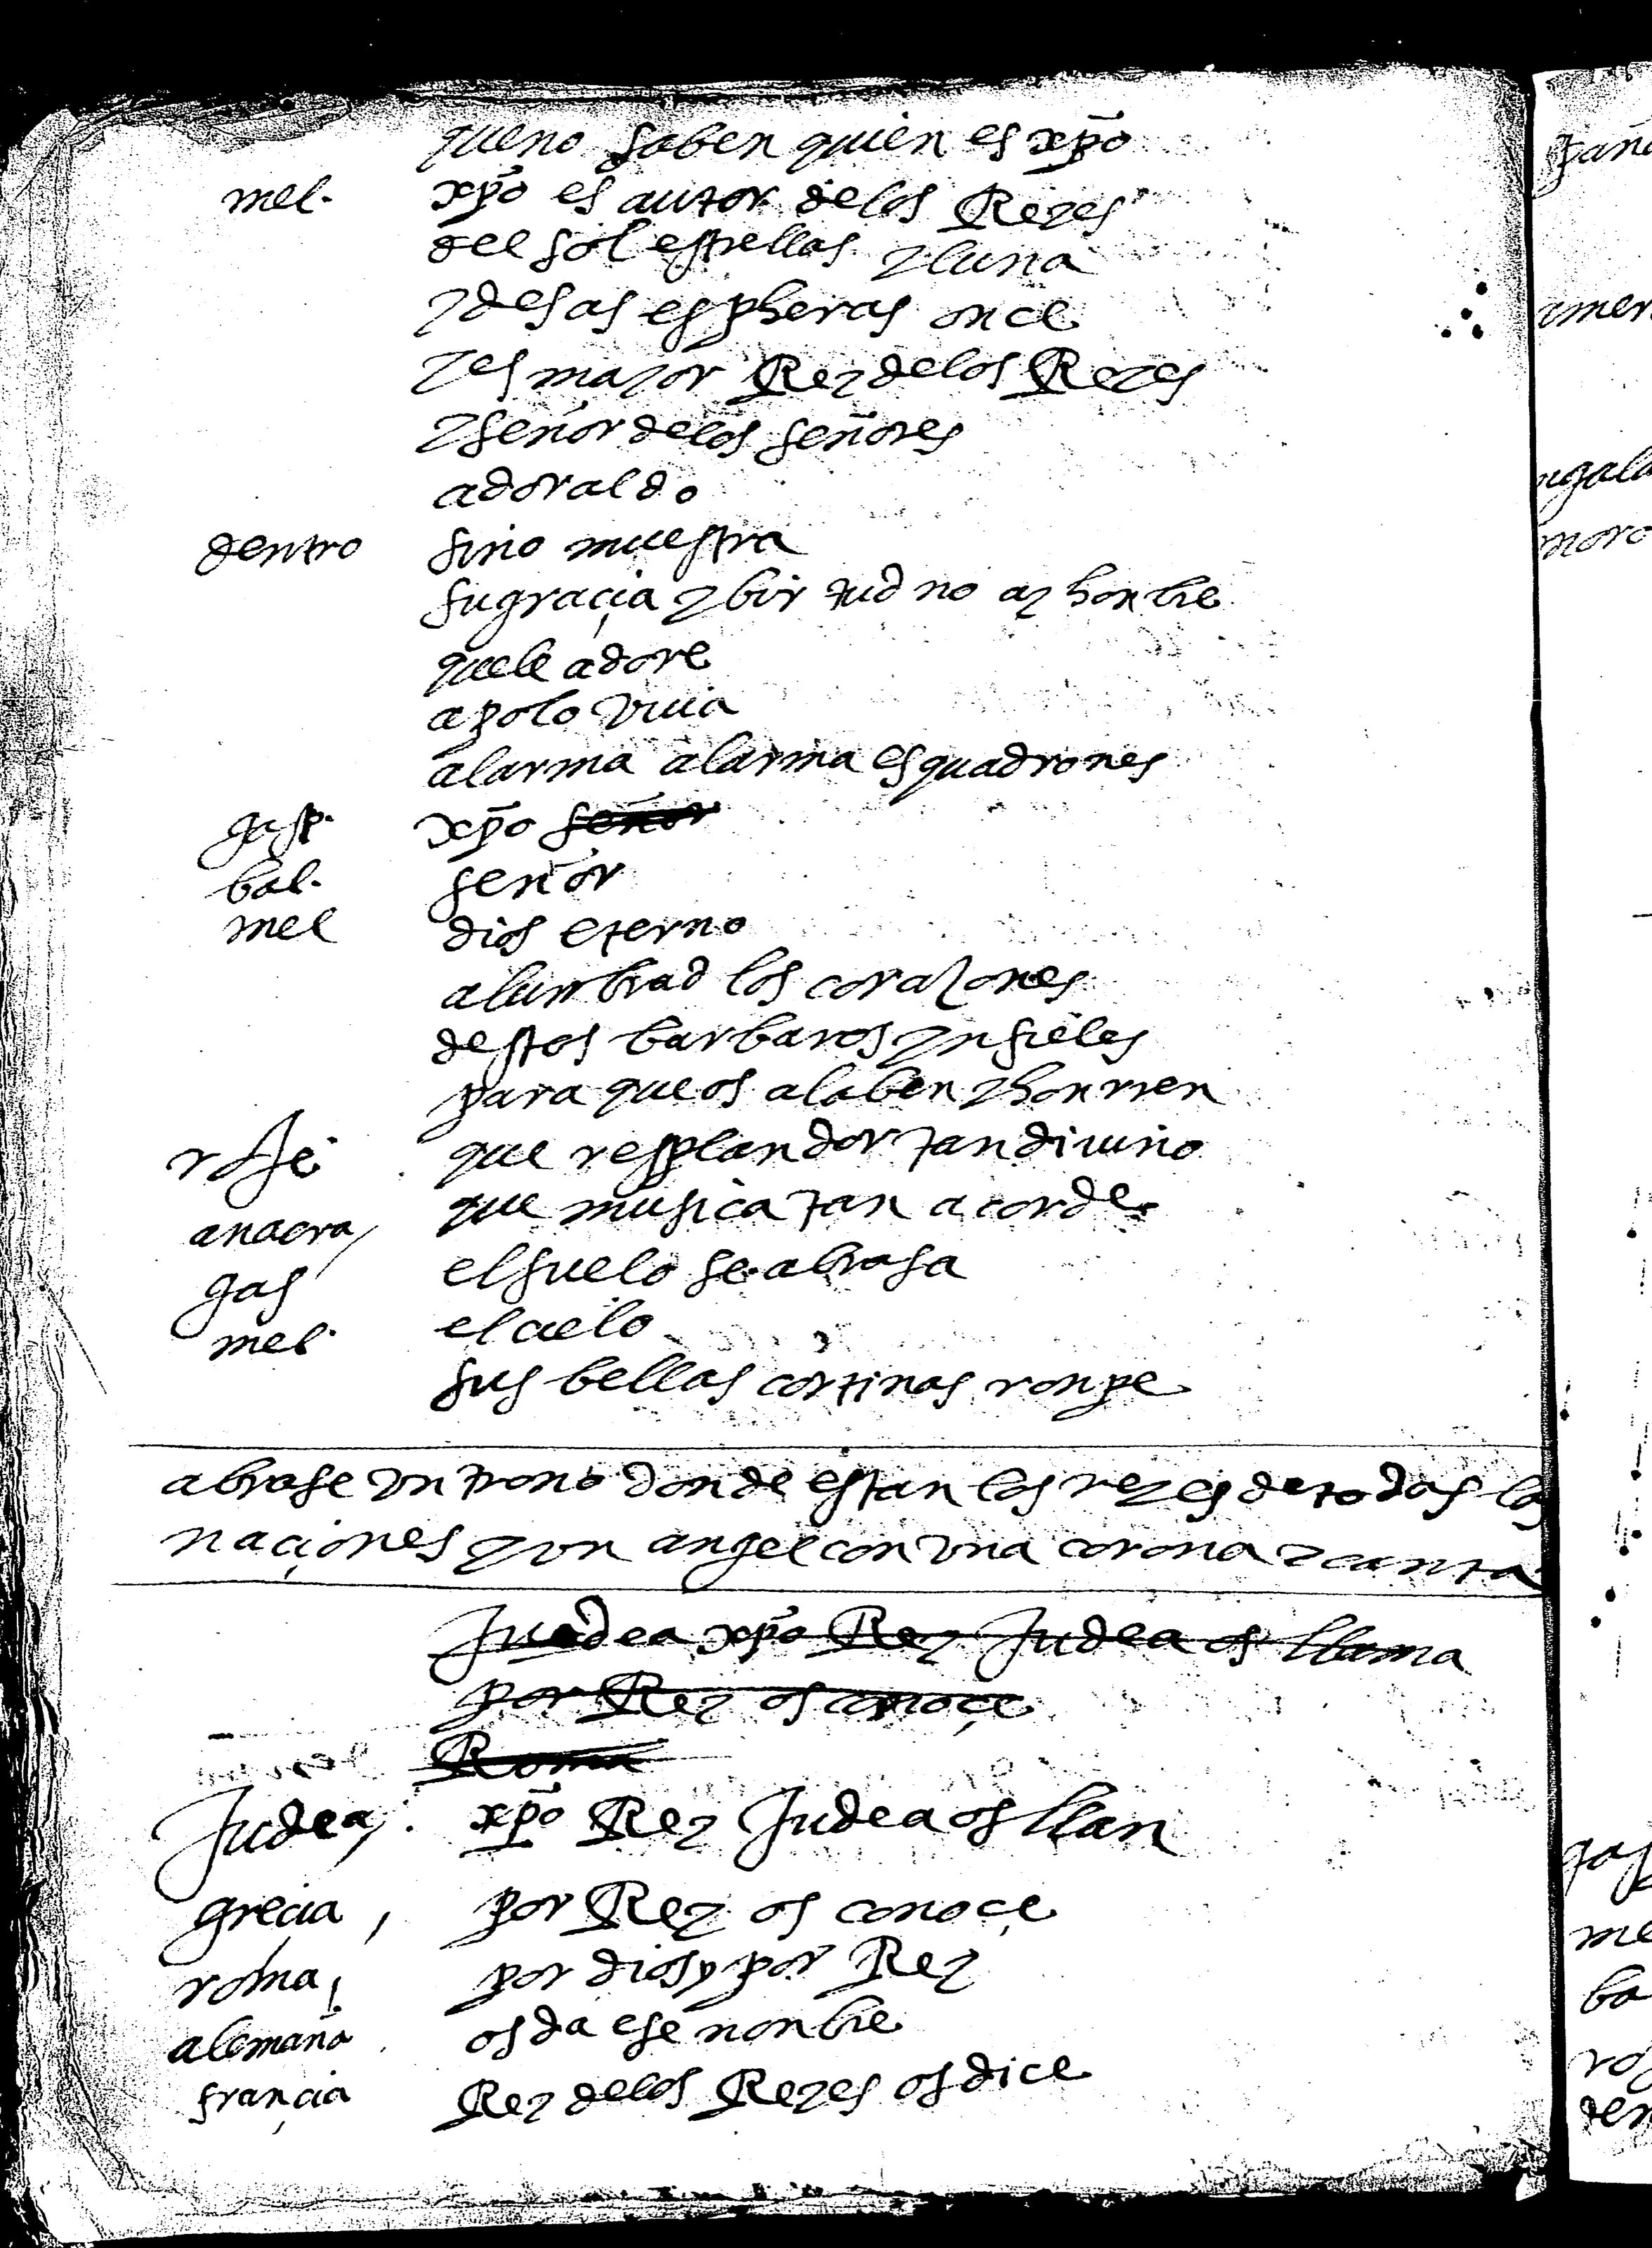 que no saben quien es xp̄o
mel. xp̄o es autor de los Reyes
del sol estrellas y luna
y desas espheras once
y es mayor Rey de los Reyes
y señor de los señores
adoraldo
dentro sino muestra
su graçia y birtud no ay honbre
que le adore
apolo viua
alarma alarma esquadrones
gasp. xp̄o señor
bal. señor
mel dios eterno
alumbrad los corazones
destos barbaros ynfieles
para que os alaben y honrren
rose que resplandor tan diuino
anacra que musica tan acorde
gas el suelo se abrasa
mel. el cielo
sus bellas cortinas ronpe
abrase vn trono donde estan los reyes de todas las
naçiones y vn angel con vna corona y canta
Juadea xp̄o Rey Judea os llama
por Rey os conoçe
Roma
Judea. xp̄o Rey Judea os llan
grecia, por Rey os conoçe
roma, por dios y por Rey
alemaña os da ese nonbre
françia Rey de los Reyes os dice
pana
amer
ngala
moro
gas
me
ba
ros
den